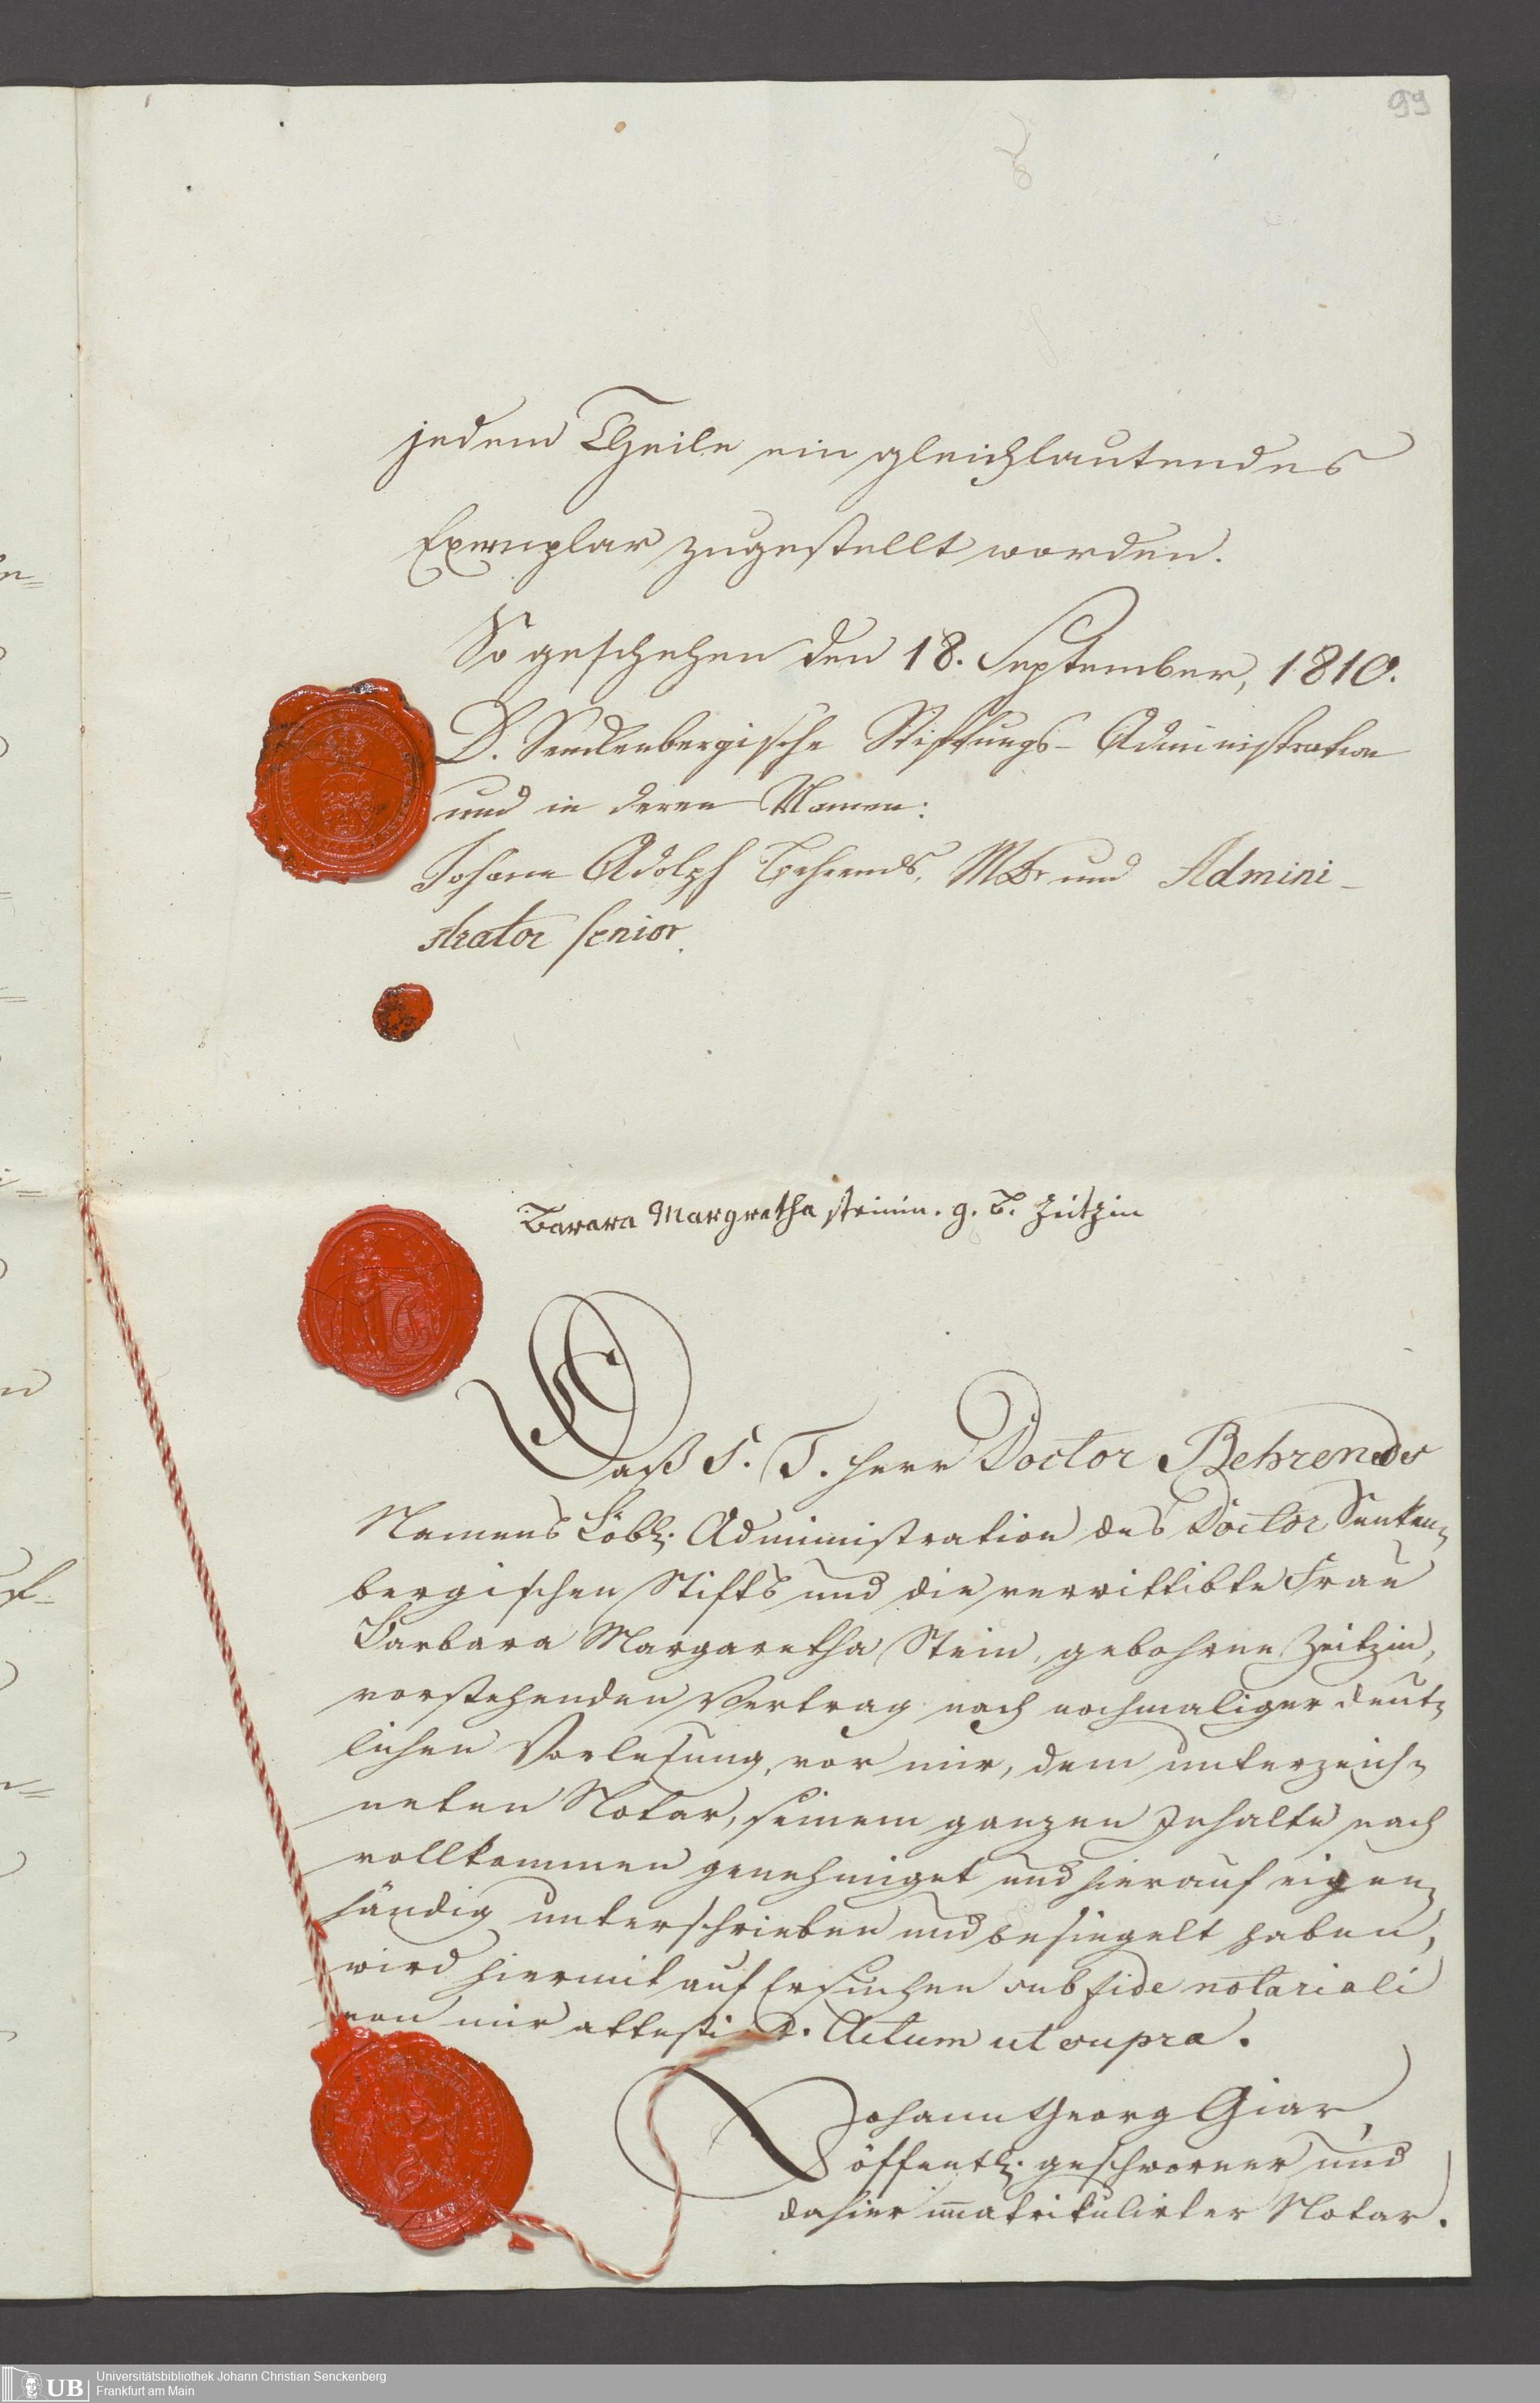 99
jedem Theile ein gleichlautendes
Exemplar zugestellt worden.
So geschehen den 18. September, 1810.
D. Senckenbergische Stiftungs-Administration
und in deren Namen:
Johann Adolph Behrends, MDr und Admini-
strator senior.
Barara Margretha steinin. g. B. Zeitzin
Daß S. T. Herr Doctor Behrends
Namens Löbl. Administration des Doctor Senken-
bergischen Stifts und die verwittibte Frau
Barbara Margaretha Stein, gebohrne Zeitzin,
vorstehenden Vertrag nach nochmaliger deut-
lichen Vorlesung, vor mir, dem unterzeich-
neten Notar, seinem ganzen Inhalte nach
vollkommen genehmiget und hierauf eigen-
händig unterschrieben und besiegelt haben,
wird hiermit auf Ersuchen sub fide notariali
von mir attestirt. Actum ut supra.
Johann Georg Giar,
öffentl. geschworner und
dahier immatrikulirter Notar.
UB
Universitätsbibliothek Johann Christian Senckenberg
Frankfurt am Main